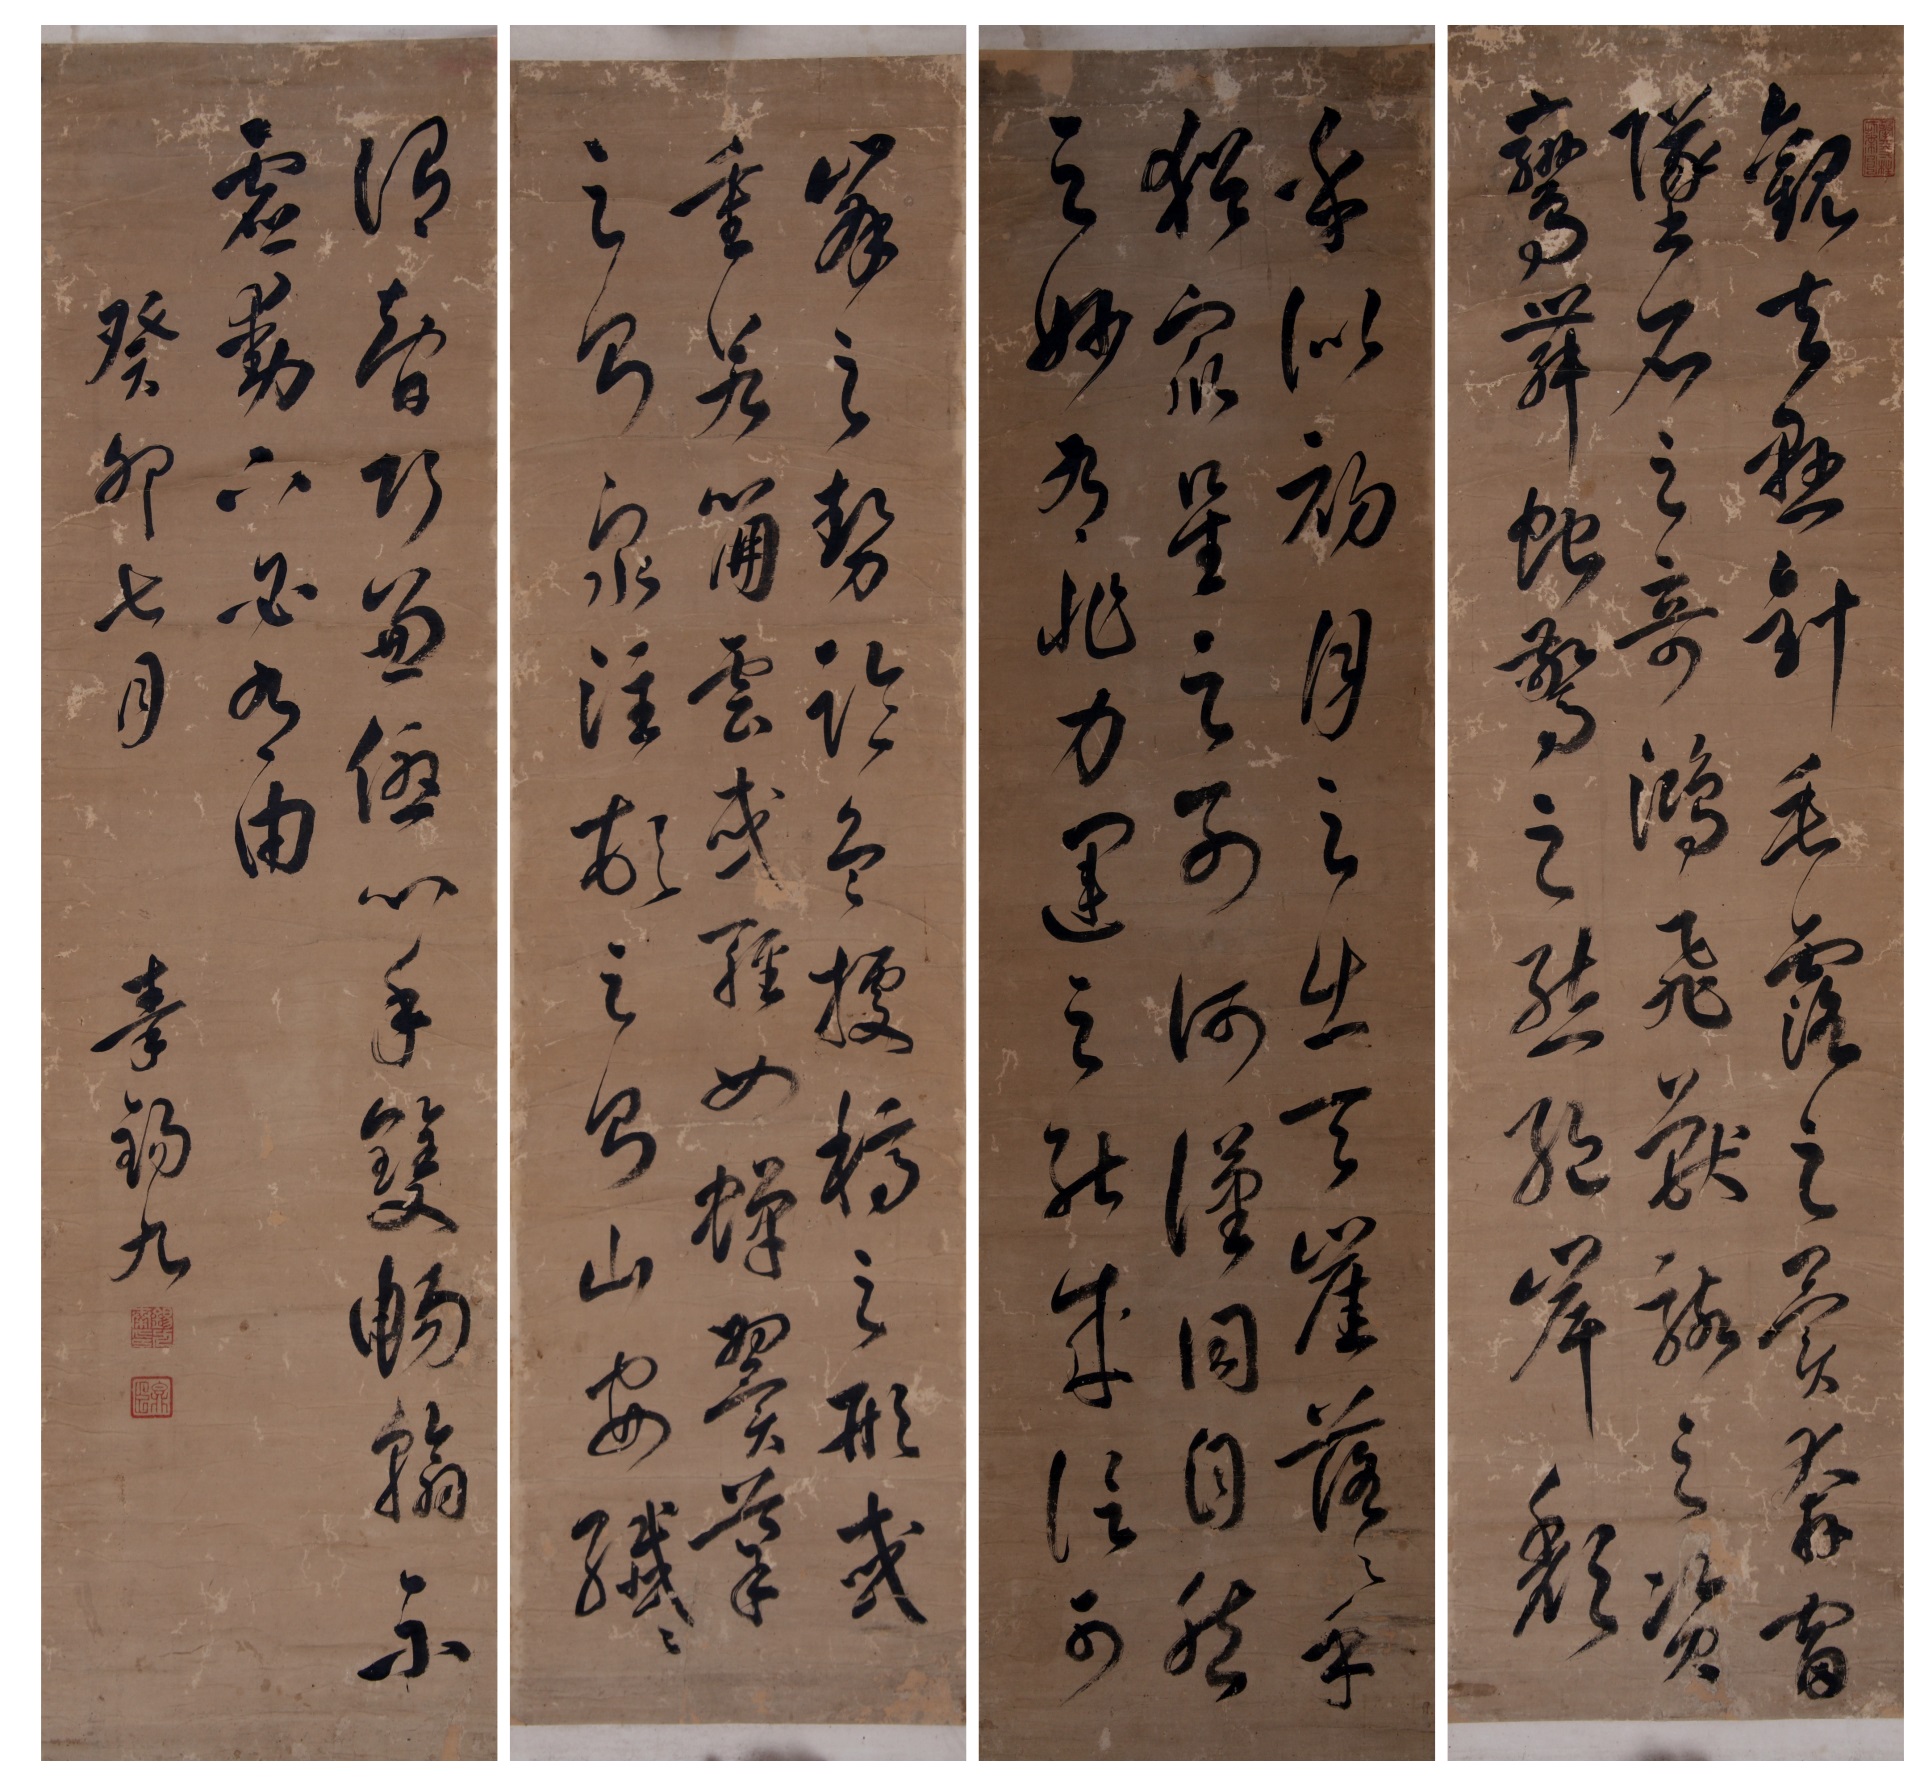 觀夫懸針垂露之異奔雷
墜石之奇鴻飛獸駭之資
鸞舞蛇驚之態絕岸頹
乎似初月之出天崖落〻乎
猶眾星之列河漢同自然
之妙有非力運之能成信可
峯之勢臨危據槁之形或
重若崩雲或輕如蟬翼導
之則泉注頓之則山安纖〻
謂智巧兼優心手雙暢翰不
虛動下必有由
癸卯七月 秦錫九